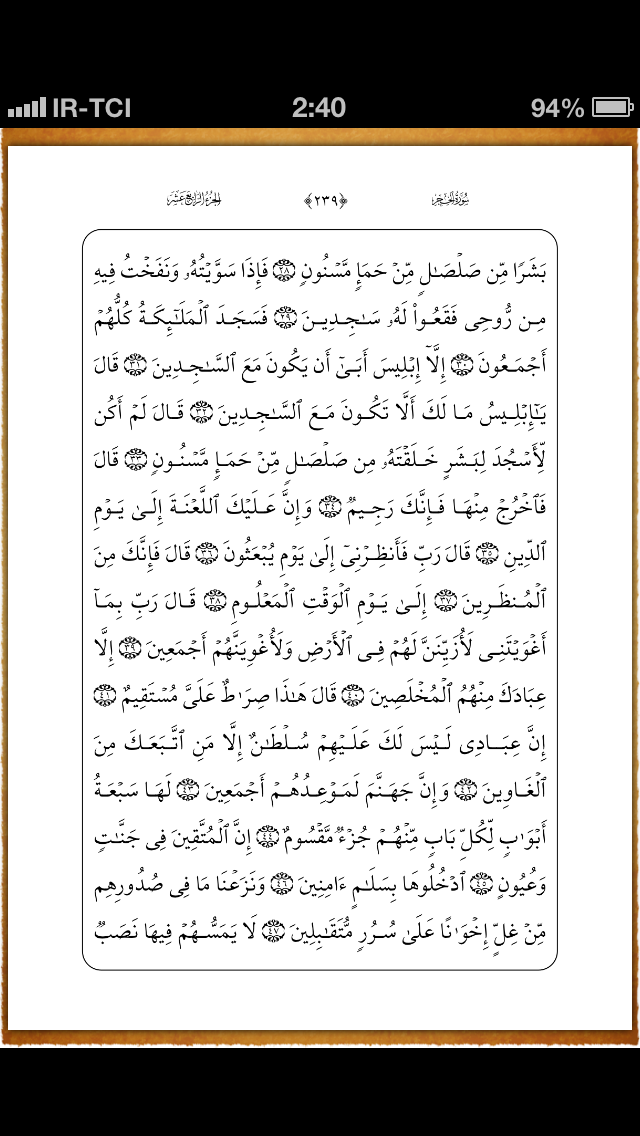 IR-TCI 2:40 94%
سُورَةُ الحِجر ﴿٢٣٩﴾ الجزء الرابع عشر
بَشَرًا مِّن صَلْصَـٰلٍ مِّنْ حَمَإٍ مَّسْنُونٍ ٢٨ فَإِذَا سَوَّيْتُهُۥ وَنَفَخْتُ فِيهِ
مِن رُّوحِى فَقَعُوا۟ لَهُۥ سَـٰجِدِينَ ٢٩ فَسَجَدَ ٱلْمَلَـٰٓئِكَةُ كُلُّهُمْ
أَجْمَعُونَ ٣٠ إِلَّآ إِبْلِيسَ أَبَىٰٓ أَن يَكُونَ مَعَ ٱلسَّـٰجِدِينَ ٣١ قَالَ
يَـٰٓإِبْلِيسُ مَا لَكَ أَلَّا تَكُونَ مَعَ ٱلسَّـٰجِدِينَ ٣٢ قَالَ لَمْ أَكُن
لِّأَسْجُدَ لِبَشَرٍ خَلَقْتَهُۥ مِن صَلْصَـٰلٍ مِّنْ حَمَإٍ مَّسْنُونٍ ٣٣ قَالَ
فَٱخْرُجْ مِنْهَا فَإِنَّكَ رَجِيمٌ ٣٤ وَإِنَّ عَلَيْكَ ٱللَّعْنَةَ إِلَىٰ يَوْمِ
ٱلدِّينِ ٣٥ قَالَ رَبِّ فَأَنظِرْنِىٓ إِلَىٰ يَوْمِ يُبْعَثُونَ ٣٦ قَالَ فَإِنَّكَ مِنَ
ٱلْمُنظَرِينَ ٣٧ إِلَىٰ يَوْمِ ٱلْوَقْتِ ٱلْمَعْلُومِ ٣٨ قَالَ رَبِّ بِمَآ
أَغْوَيْتَنِى لَأُزَيِّنَنَّ لَهُمْ فِى ٱلْأَرْضِ وَلَأُغْوِيَنَّهُمْ أَجْمَعِينَ ٣٩ إِلَّا
عِبَادَكَ مِنْهُمُ ٱلْمُخْلَصِينَ ٤٠ قَالَ هَـٰذَا صِرَٰطٌ عَلَىَّ مُسْتَقِيمٌ ٤١
إِنَّ عِبَادِى لَيْسَ لَكَ عَلَيْهِمْ سُلْطَـٰنٌ إِلَّا مَنِ ٱتَّبَعَكَ مِنَ
ٱلْغَاوِينَ ٤٢ وَإِنَّ جَهَنَّمَ لَمَوْعِدُهُمْ أَجْمَعِينَ ٤٣ لَهَا سَبْعَةُ
أَبْوَٰبٍ لِّكُلِّ بَابٍ مِّنْهُمْ جُزْءٌ مَّقْسُومٌ ٤٤ إِنَّ ٱلْمُتَّقِينَ فِى جَنَّـٰتٍ
وَعُيُونٍ ٤٥ ٱدْخُلُوهَا بِسَلَـٰمٍ ءَامِنِينَ ٤٦ وَنَزَعْنَا مَا فِى صُدُورِهِم
مِّنْ غِلٍّ إِخْوَٰنًا عَلَىٰ سُرُرٍ مُّتَقَـٰبِلِينَ ٤٧ لَا يَمَسُّهُمْ فِيهَا نَصَبٌ